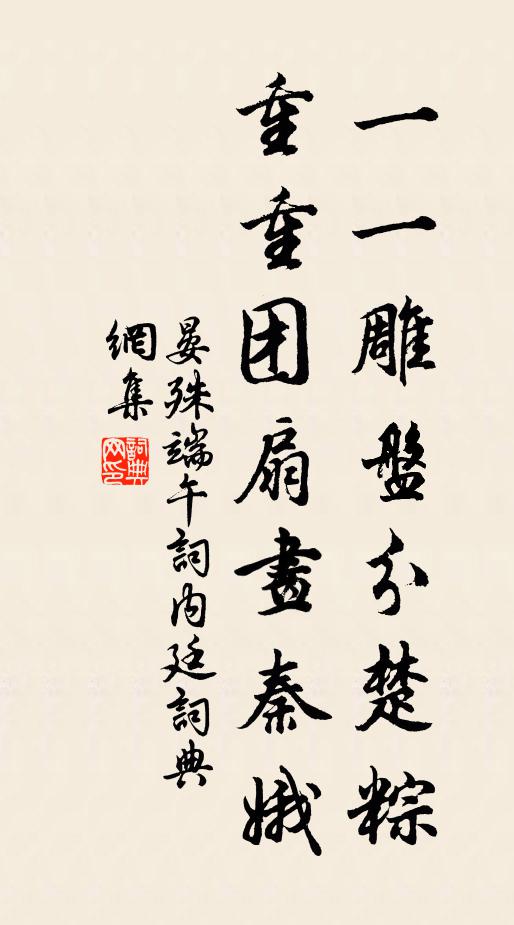 一一雕盤分楚粽
重重团扇畫秦娥
晏殊端午詞内廷詞典
網集
詞典
网印